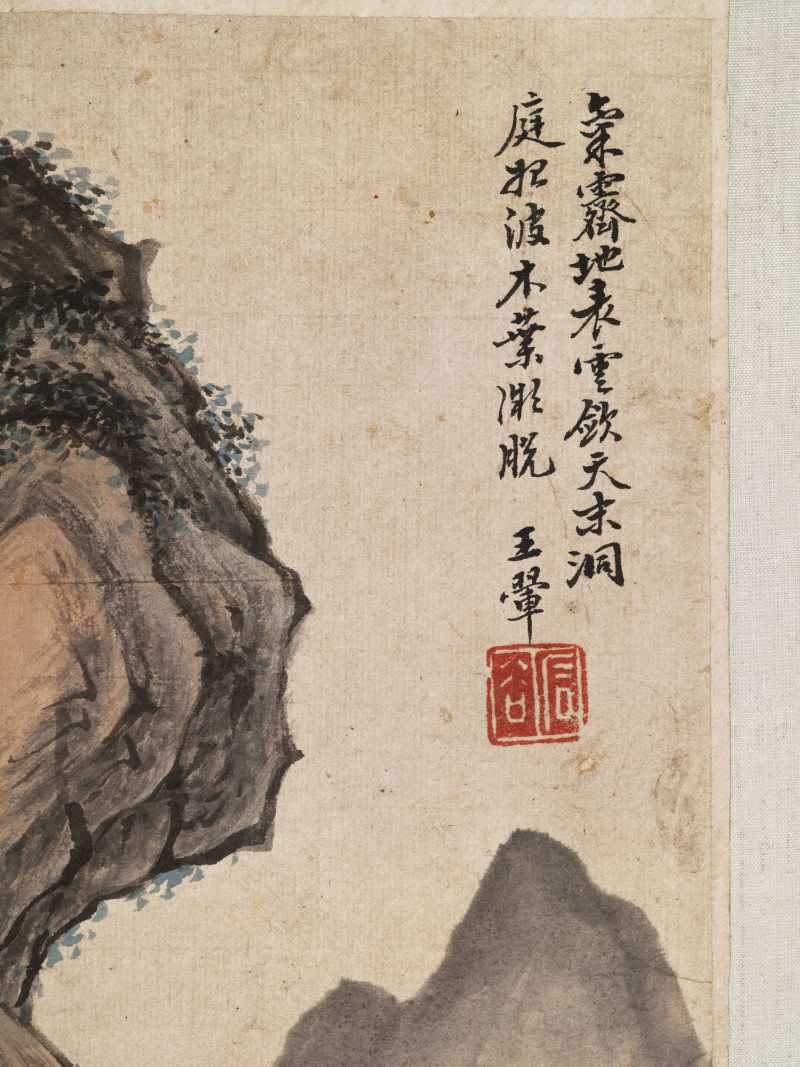 氣霽地表雲歛天末洞
庭始波木葉微脫
王翬